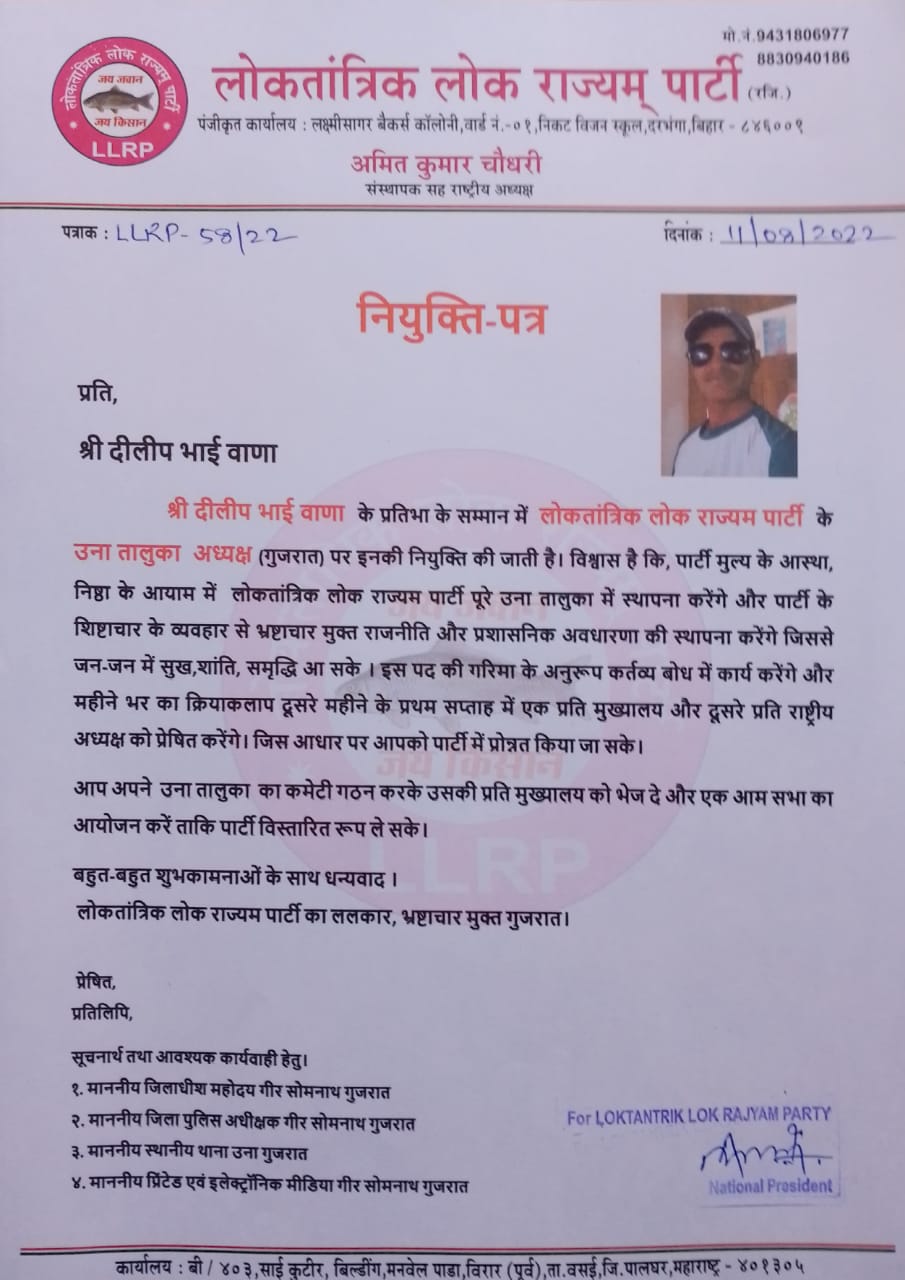 मो.नं.9431806977
8830940186
लोकतांत्रिक लोक राज्यम् पार्टी
जय जवान
जय किसान
LLRP
लोकतांत्रिक लोक राज्यम् पार्टी (रजि.)
पंजीकृत कार्यालय : लक्ष्मीसागर बैकर्स कॉलोनी,वार्ड नं.-०१,निकट विजन स्कूल,दरभंगा,बिहार - ८४६००१
अमित कुमार चौधरी
संस्थापक सह राष्ट्रीय अध्यक्ष
पत्राक : LLRP- 58/22 दिनांक : 11/08/2022
नियुक्ति-पत्र
प्रति,
श्री दीलीप भाई वाणा
श्री दीलीप भाई वाणा के प्रतिभा के सम्मान में लोकतांत्रिक लोक राज्यम पार्टी के
उना तालुका अध्यक्ष (गुजरात) पर इनकी नियुक्ति की जाती है। विश्वास है कि, पार्टी मुल्य के आस्था,
निष्ठा के आयाम में लोकतांत्रिक लोक राज्यम पार्टी पूरे उना तालुका में स्थापना करेंगे और पार्टी के
शिष्टाचार के व्यवहार से भ्रष्टाचार मुक्त राजनीति और प्रशासनिक अवधारणा की स्थापना करेंगे जिससे
जन-जन में सुख,शांति, समृद्धि आ सके । इस पद की गरिमा के अनुरूप कर्तव्य बोध में कार्य करेंगे और
महीने भर का क्रियाकलाप दूसरे महीने के प्रथम सप्ताह में एक प्रति मुख्यालय और दूसरे प्रति राष्ट्रीय
अध्यक्ष को प्रेषित करेंगे। जिस आधार पर आपको पार्टी में प्रोन्नत किया जा सके।
आप अपने उना तालुका का कमेटी गठन करके उसकी प्रति मुख्यालय को भेज दे और एक आम सभा का
आयोजन करें ताकि पार्टी विस्तारित रूप ले सके।
बहुत-बहुत शुभकामनाओं के साथ धन्यवाद ।
लोकतांत्रिक लोक राज्यम पार्टी का ललकार, भ्रष्टाचार मुक्त गुजरात।
जय जवान
जय किसान
LLRP
प्रेषित,
प्रतिलिपि,
सूचनार्थ तथा आवश्यक कार्यवाही हेतु।
१. माननीय जिलाधीश महोदय गीर सोमनाथ गुजरात
२. माननीय जिला पुलिस अधीक्षक गीर सोमनाथ गुजरात
३. माननीय स्थानीय थाना उना गुजरात
४. माननीय प्रिंटेड एवं इलेक्ट्रॉनिक मीडिया गीर सोमनाथ गुजरात
For LOKTANTRIK LOK RAJYAM PARTY
National President
कार्यालय : बी / ४०३,साई कुटीर, बिल्डींग,मनवेल पाडा,विरार (पूर्व),ता.वसई,जि.पालघर,महाराष्ट्र - ४०१३०५